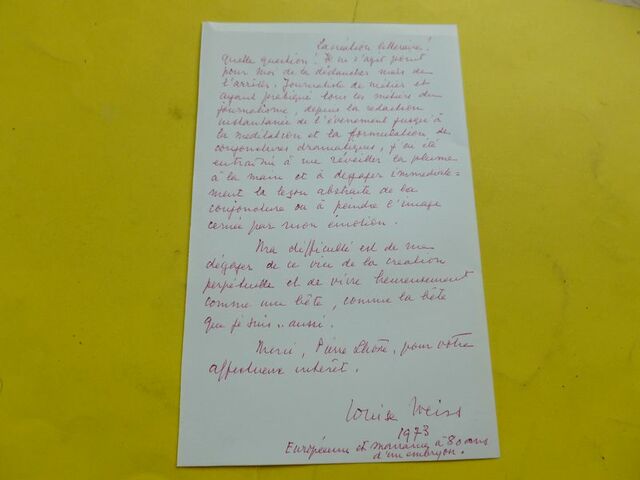 La création littéraire !
Quelle question ! Il ne s'agit point
pour moi de la déclancher mais de
l'arrêter. Journaliste de métier et
ayant pratiqué tous les métiers du
journalisme, depuis la rédaction
instantanée de l'évènement jusqu'à
la méditation et la formulation de
conjonctures dramatiques, j'ai été
entraînée à me réveiller la plume
à la main et à dégager immédiate=
ment la leçon abstraite de la
conjoncture ou à peindre l'image
cernée par mon émotion.
Ma difficulté est de me
dégager de ce vice de la création
perpétuelle et de vivre heureusement
comme une bête, comme la bête
que je suis.. aussi.
Merci, Pierre Lhoste, pour votre
affectueux intérêt.
Louise Weiss
1973
Européenne et à 80 ans
d'un embryon.